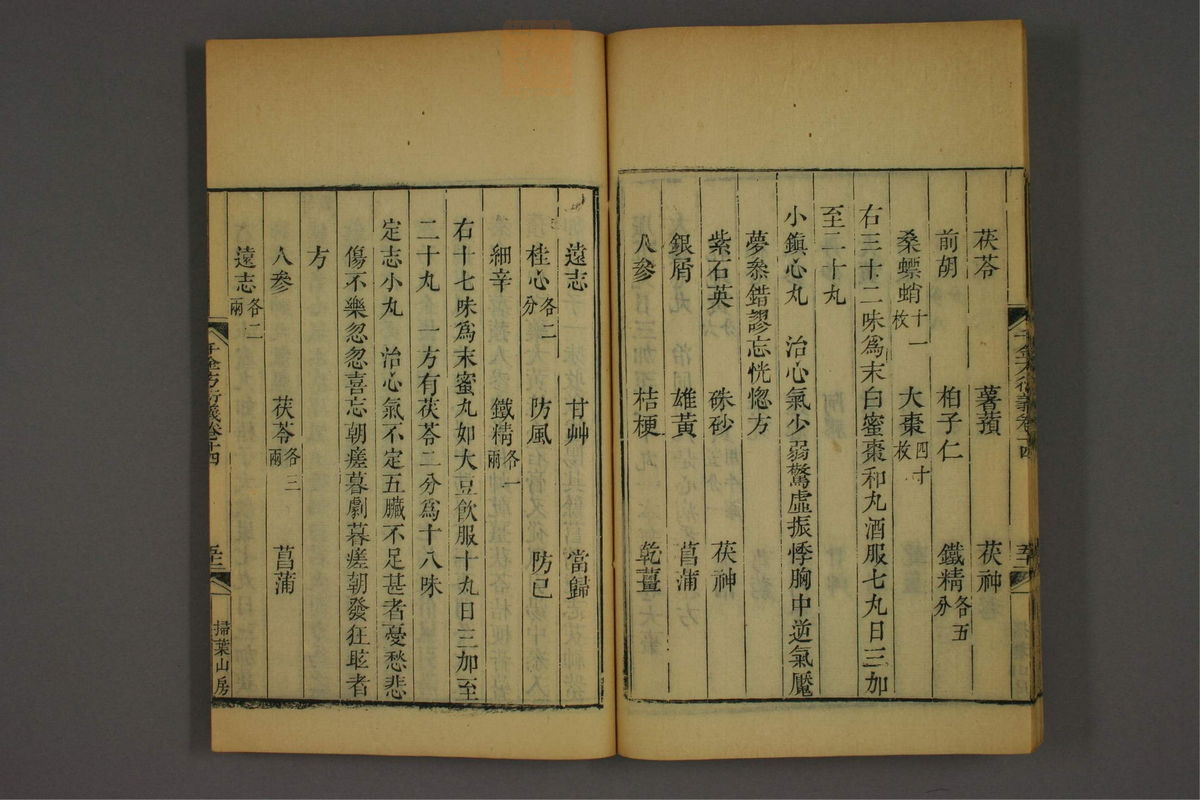 茯苓 薯蕷 茯神
前胡 柏子仁 鐵精各五分
桑螵蛸十一枚 大棗四十枚
右三十二味爲末白蜜棗和丸酒服七丸日三加
至二十丸
小鎭心丸 治心氣少弱驚虛振悸胸中逆氣魘
夢叅錯謬忘恍惚方
紫石英 硃砂 茯神
銀屑 雄黃 菖蒲
人參 桔梗 乾薑
遠志 甘艸 當歸
桂心各二分 防風 防已
細辛 鐵精各一兩
右十七味爲末蜜丸如大豆飮服十丸日三加至
二十丸 一方有茯苓二分爲十八味
定志小丸 治心氣不定五臟不足甚者憂愁悲
傷不樂忽忽喜忘朝瘥暮劇暮瘥朝發狂眩者
方
人參 茯苓各三兩 菖蒲
遠志各二兩
千金方衍義卷十四
掃葉山房